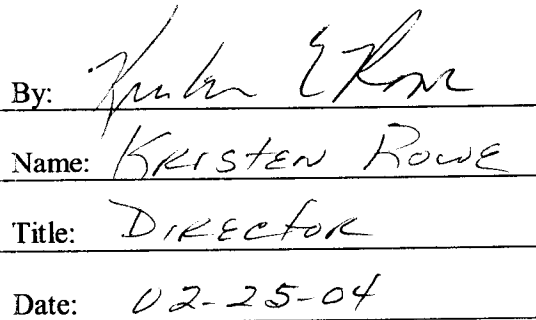 By: Kristen E Rowe
Name: Kristen Rowe
Title: Director
Date: 02-25-04